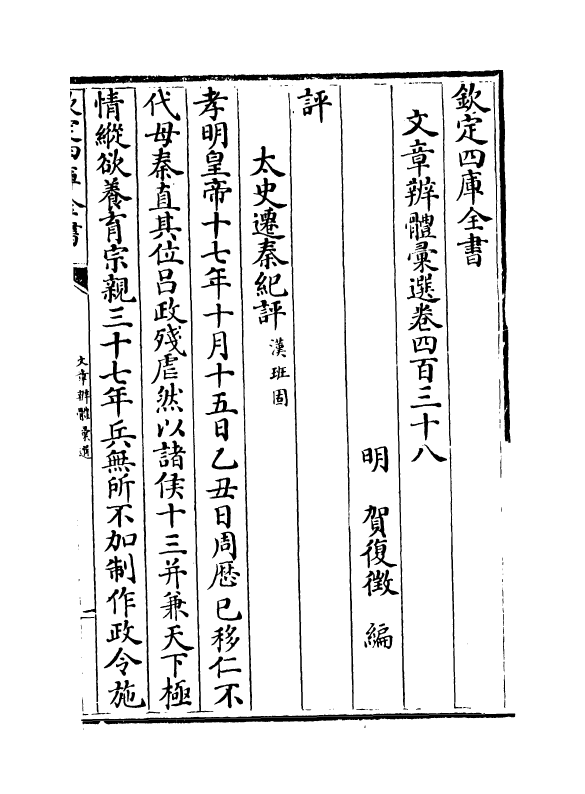 欽定四庫全書
文章辨體彚選卷四百三十八
明　賀復徵　編
評
太史遷秦紀評漢班固
孝明皇帝十七年十月十五日乙丑日周歴已移仁不
代母秦直其位吕政殘虐然以諸侯十三并兼天下極
情縱欲養育宗親三十七年兵無所不加制作政令施
欽定四庫全書
文章辨體彚選